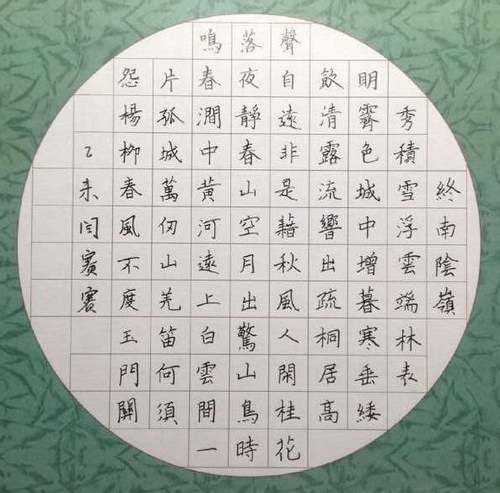 終南陰嶺
秀積雪浮雲端林表
明霽色城中增暮寒垂緌
飲清露流響出疏桐居高
聲自遠非是藉秋風人閑桂花
落夜靜春山空月出驚山鳥時
鳴春澗中黃河遠上白雲間一
片孤城萬仞山羌笛何須
怨楊柳春風不度玉門關
乙未闫